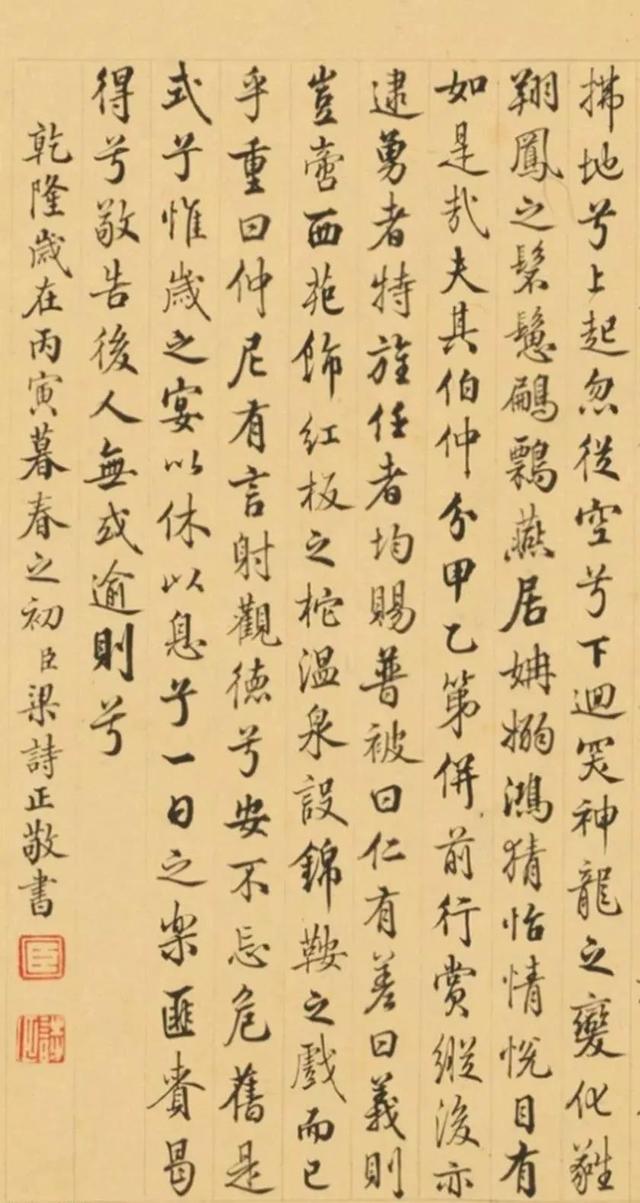 拂地兮上起忽從空兮下迴神龍之變化
翔鳳之燕居姌嫋鴻猜怡情悅目有
如是哉夫其伯仲分甲乙第併前行賞縱後亦
逮勇者特旌任者均賜普被曰仁有差曰義則
豈啻西苑飾紅板之柁溫泉設錦鞍之戲而已
乎重曰仲尼有言射觀德兮安不忘危舊是
式兮惟歲之宴以休以息兮一日之樂匪賁曷
得兮敬告後人無或逾則兮
乾隆歲在丙寅暮春之初臣梁詩正敬書
臣